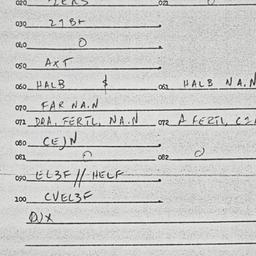 020 ZERS 021 0
030 27Bt
040 0
050 AXT
060 HALB $ 061 HALB N A.N
070 FAR NA.N
071 DRA. FERTL, NA.N 072 A FERTL,
080 CE)N
081 0 082 0
090 EL3F // HELF
100 CVEL3F